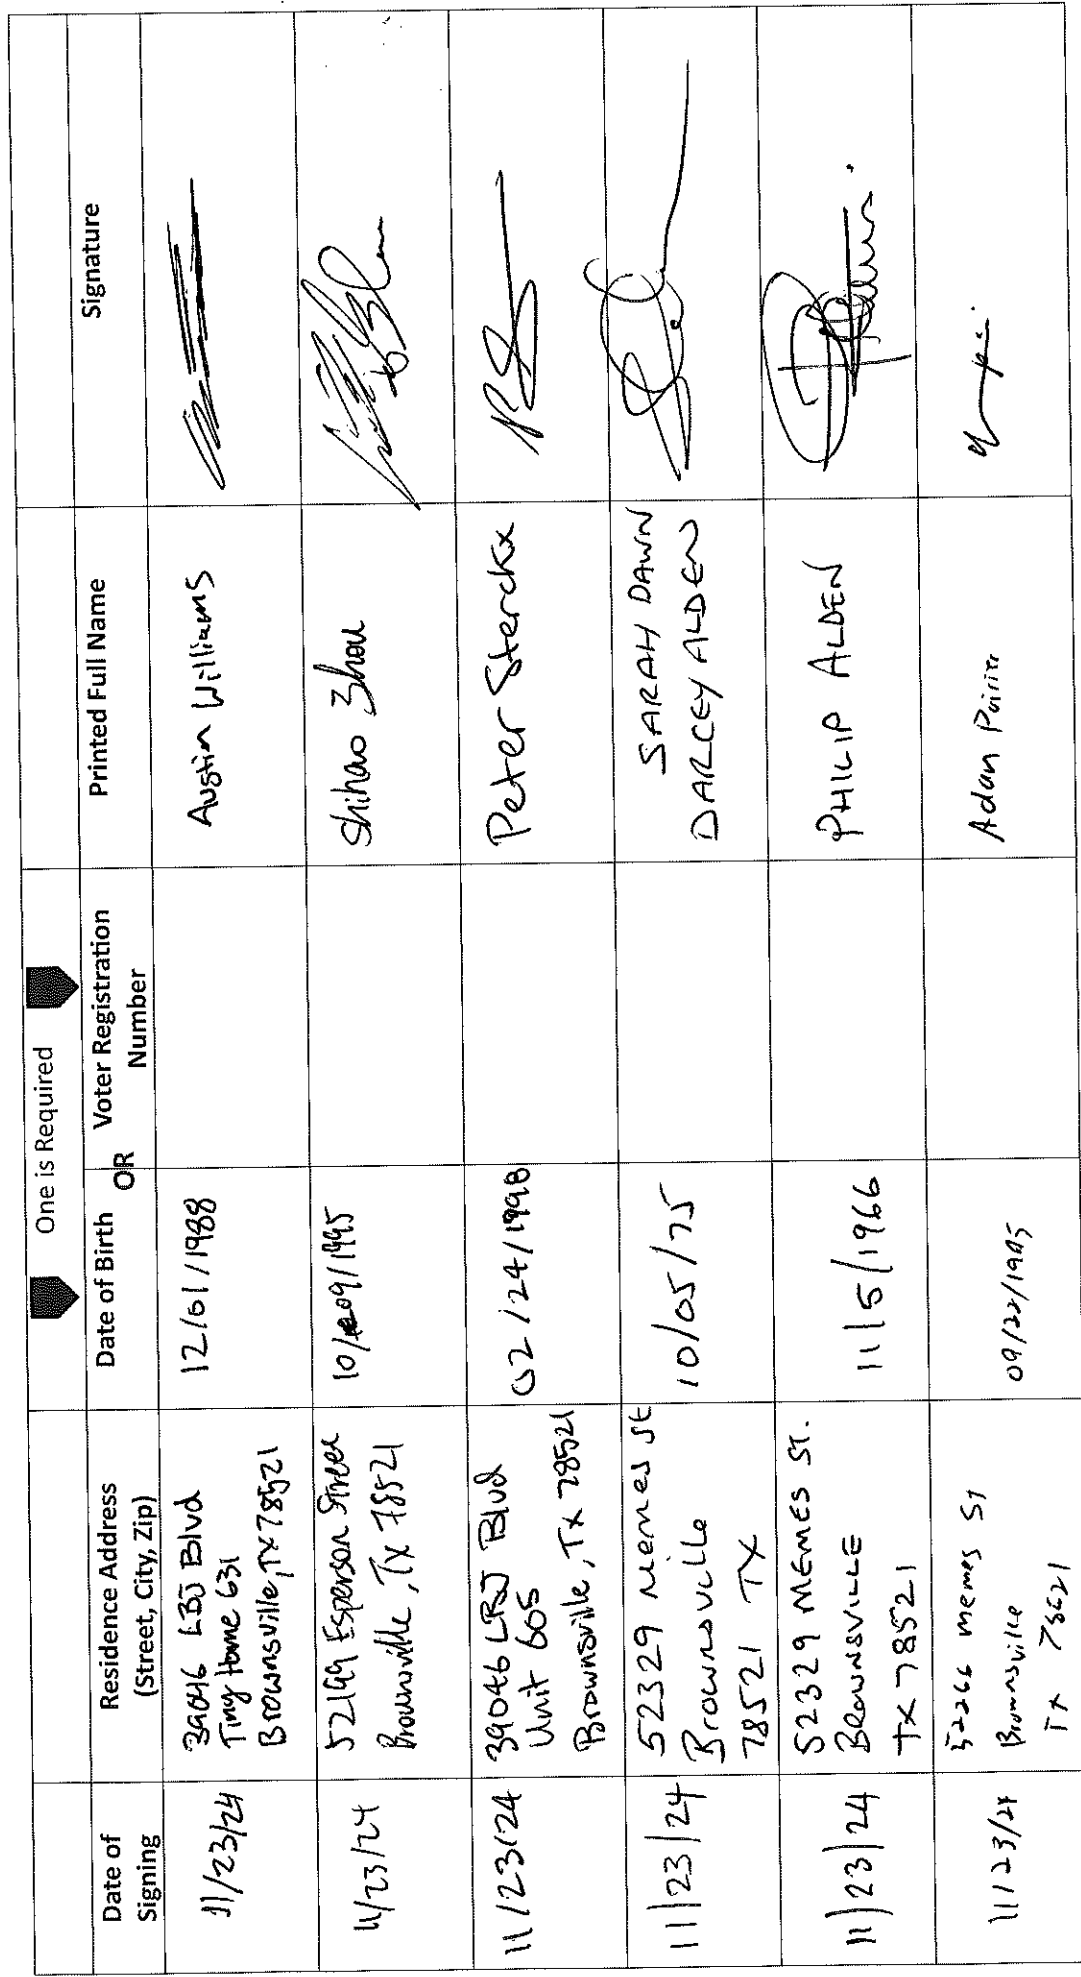 One is Required
Date of Signing
Residence Address (Street, City, Zip)
Date of Birth
OR
Voter Registration Number
Printed Full Name
Signature
11/23/24
39046 LBJ Blvd
Tiny Home 631
Brownsville, TX 78521
12/01/1988
Austin Williams
11/23/24
52199 Esperson Street
Brownville, Tx 78521
10/09/1995
Shihao Zhou
11/23/24
39046 LBJ Blvd
Unit 605
Brownsville, Tx 78521
02/24/1998
Peter Sterckx
11/23/24
52329 Memes St
Brownsville
78521 TX
10/05/75
SARAH DAWN
DARCEY ALDEN
11/23/24
52329 MEMES ST.
BROWNSVILLE
TX 78521
11/5/1966
PHILIP ALDEN
11/23/24
52266 memes St
Brownsville
Tx 78521
09/22/1995
Adan